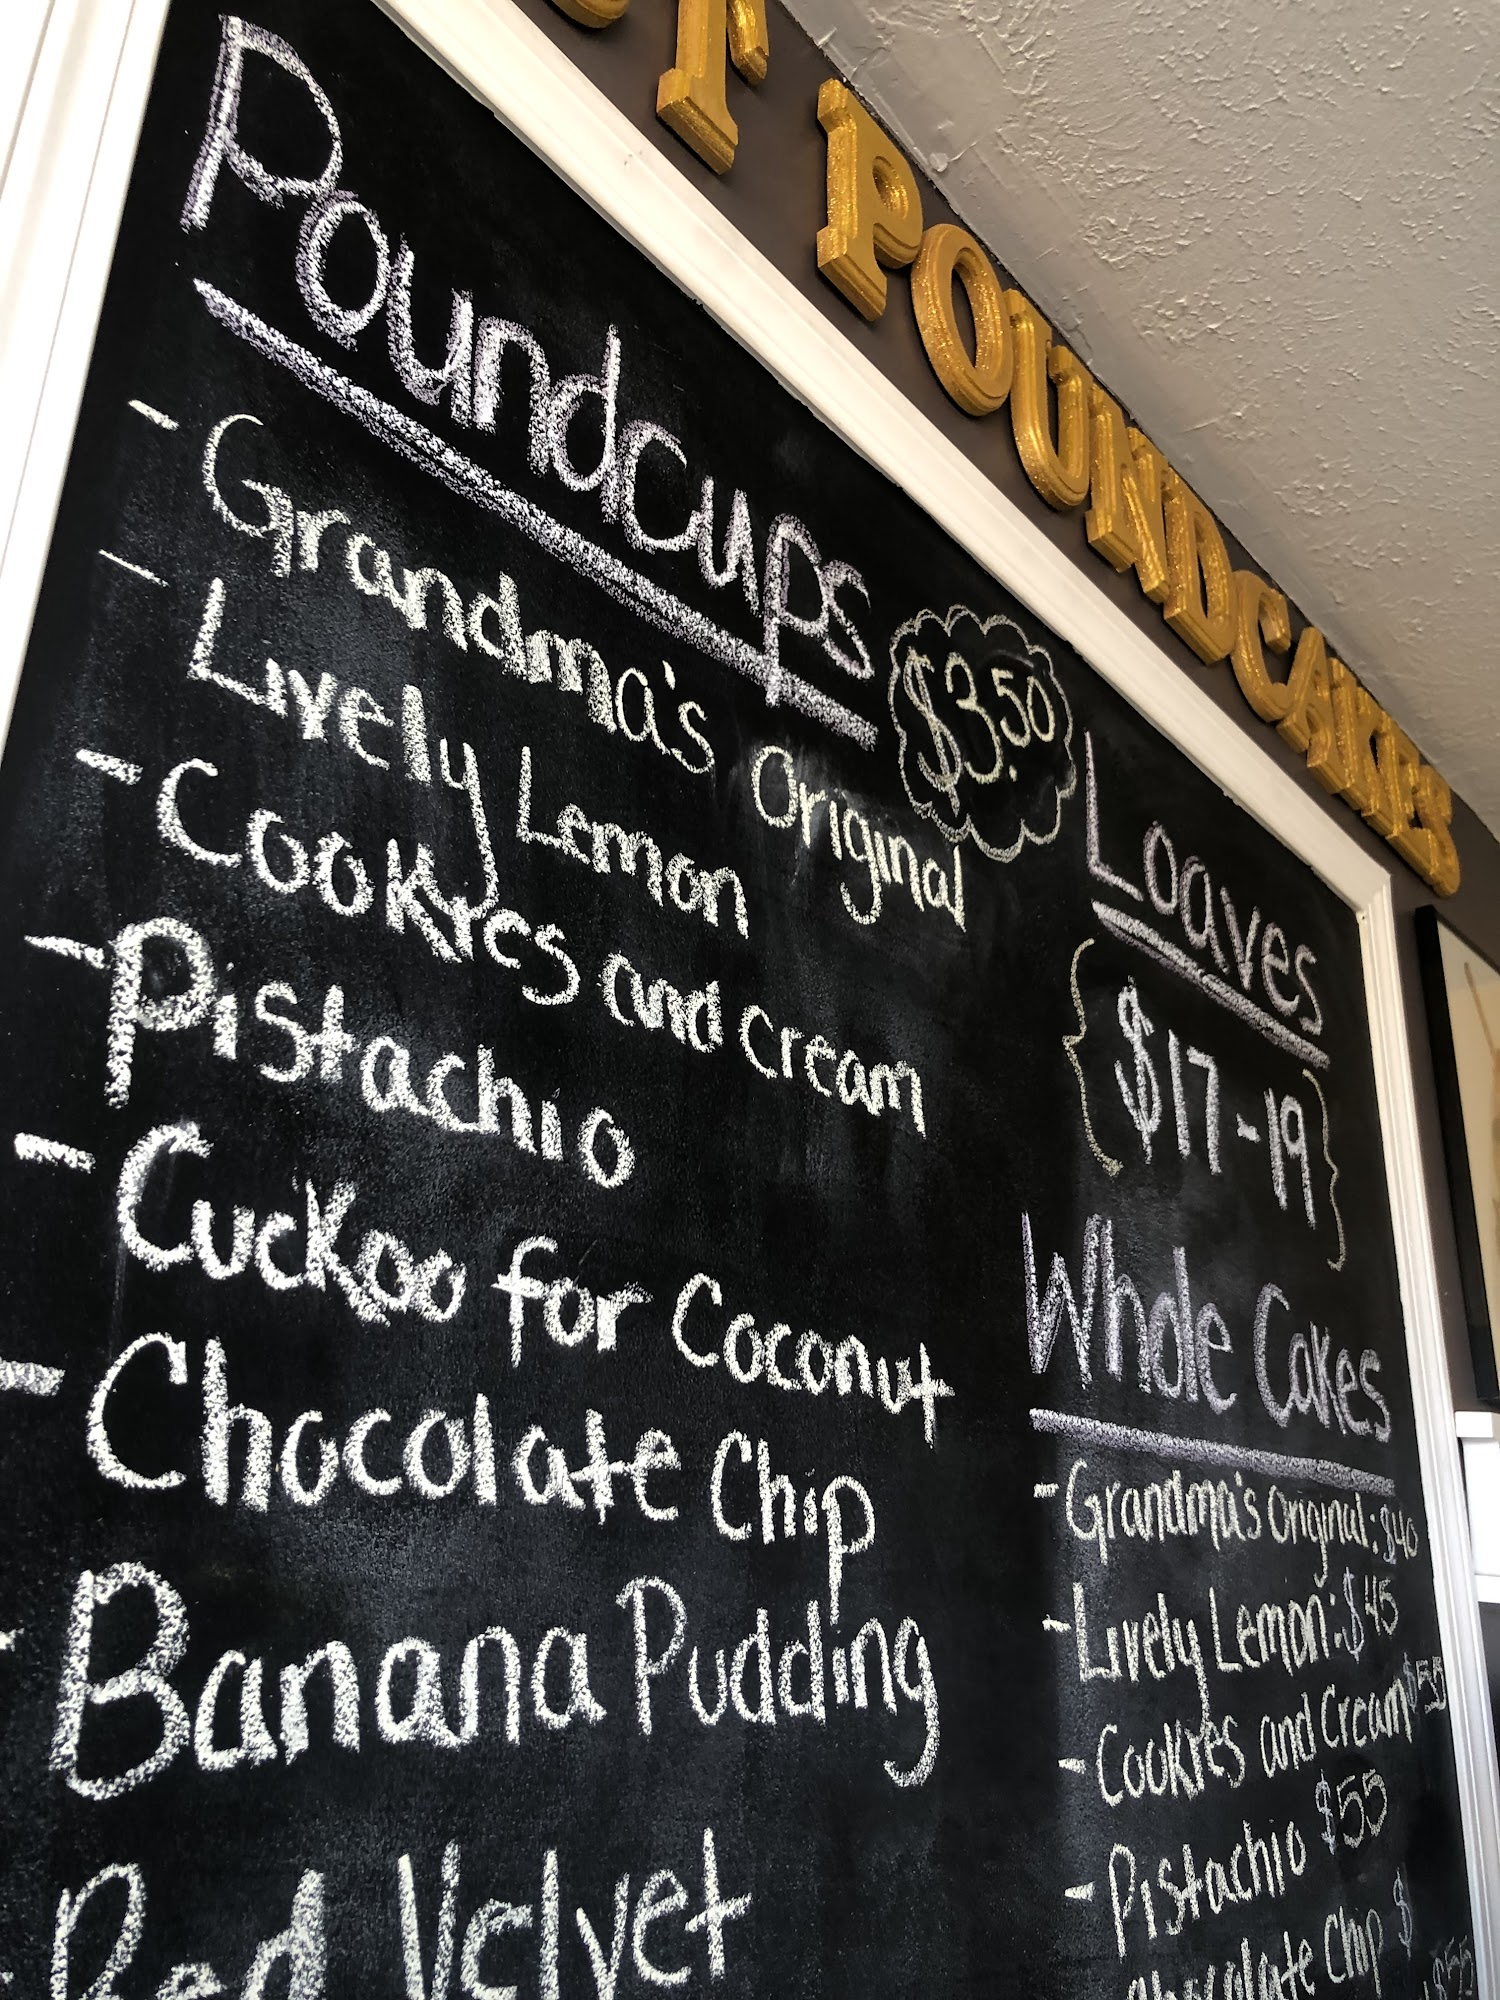 POUNDCAKES
Poundcups
$3.50
- Grandma's Original
- Lively Lemon
- Cookies and cream
- Pistachio
- Cuckoo for Coconut
- Chocolate Chip
- Banana Pudding
- Red Velvet
Loaves
{$17-19}
Whole Cakes
- Grandma's Original: $40
- Lively Lemon: $45
- Cookies and Cream
- Pistachio $55
Chocolate Chip $